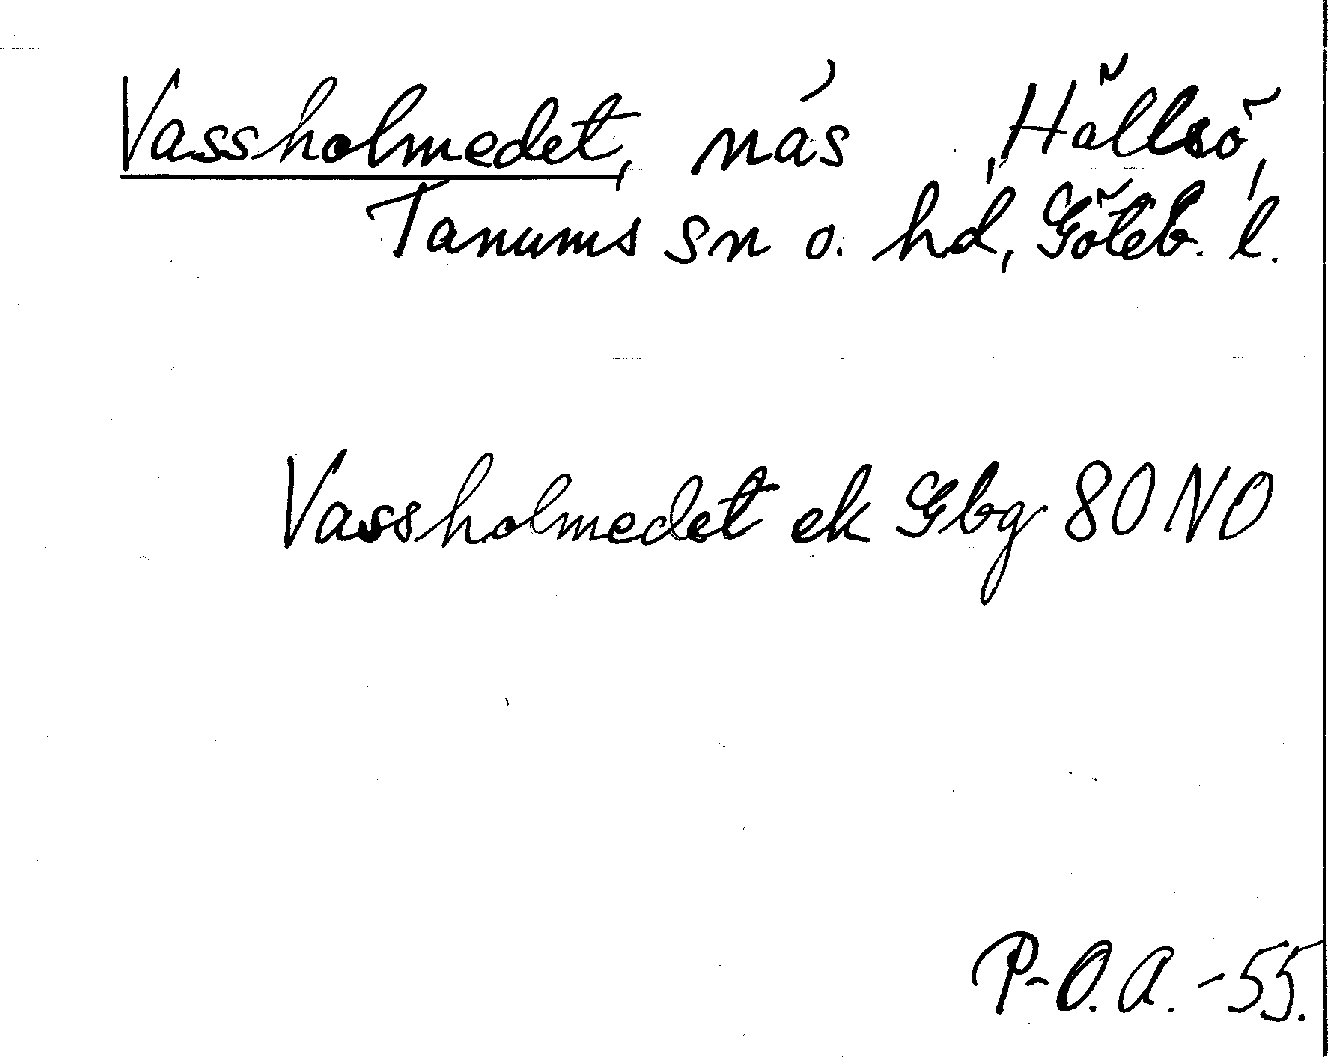 Vassholmedet, näs, Hällsö,
Tanums sn o. hd, Göteb. l.
Vassholmedet ek Gbg 80 NO
P-O.A. -55.